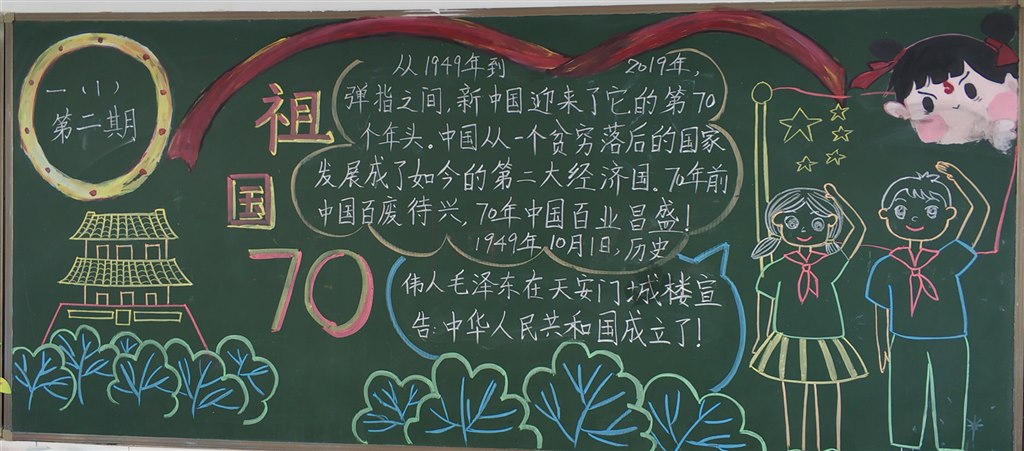 一（1）
第二期
祖
国
70
从1949年到 2019年，
弹指之间，新中国迎来了它的第70
个年头。中国从一个贫穷落后的国家
发展成了如今的第二大经济国。70年前
中国百废待兴，70年中国百业昌盛！
1949年10月1日，历史
伟人毛泽东在天安门城楼宣
告：中华人民共和国成立了！